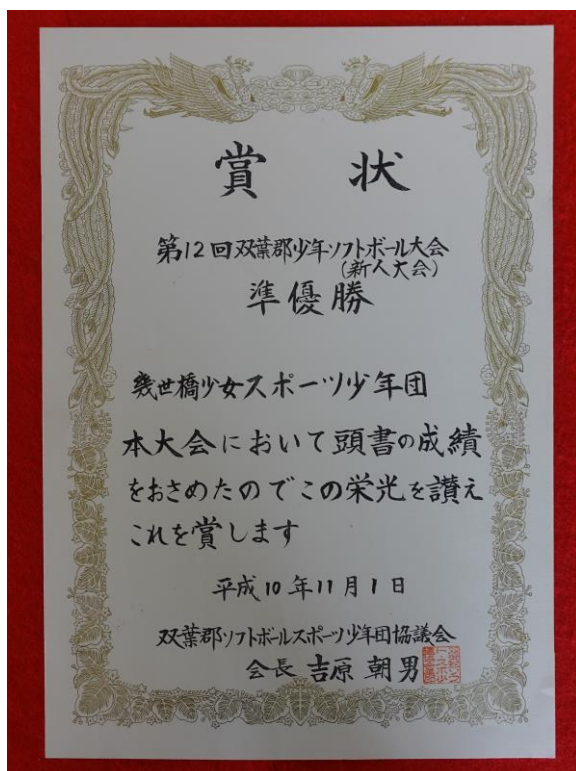 賞状
第12回双葉郡少年ソフトボール大会
(新人大会)
準優勝
幾世橋少女スポーツ少年団
本大会において頭書の成績
をおさめたのでこの栄光を讃え
これを賞します
平成10年11月1日
双葉郡ソフトボールスポーツ少年団協議会
会長 吉原朝男